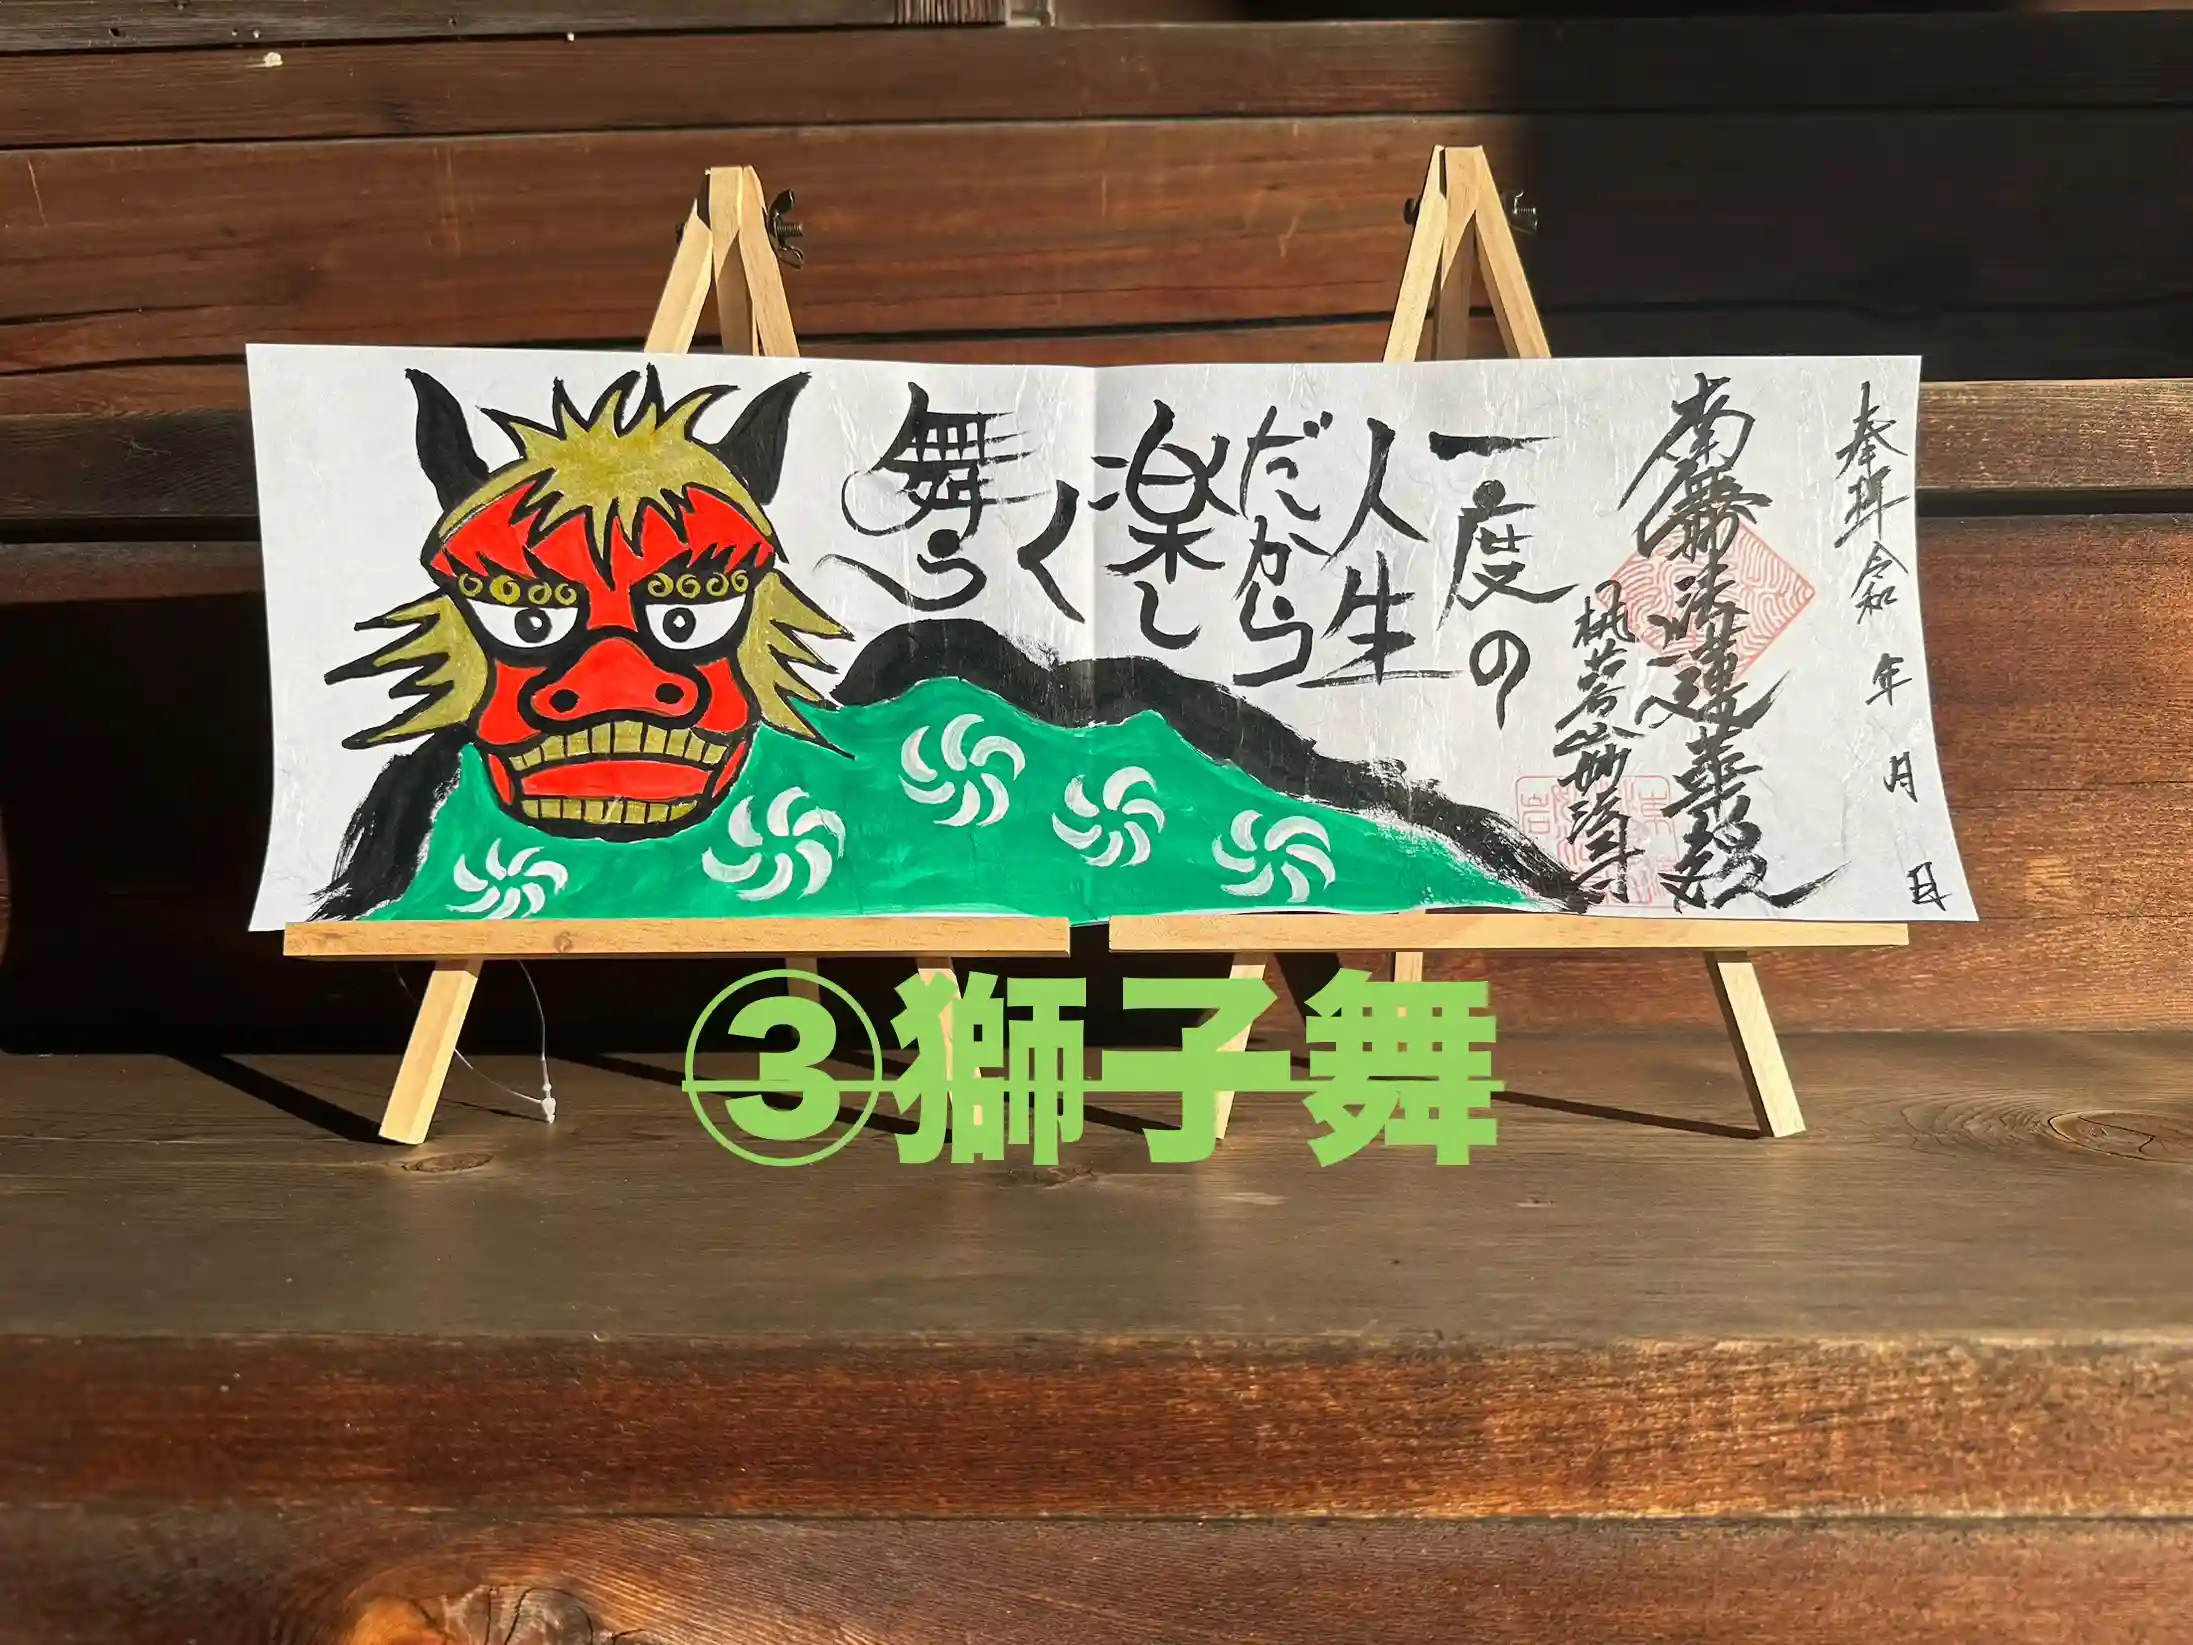 奉拝 令和 年 月 日
南無妙法蓮華経
桃岩山妙深寺
一度の
人生
だから
楽し
く
舞らへ
③獅子舞